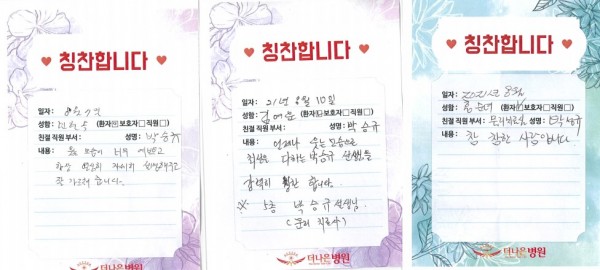 칭찬합니다
일자: 8월
성함: (환자 보호자□직원□)
친절 직원 부서: 성명: 박승규
내용: 모습이 너무
항상 열심히 자세히
잘 가르쳐 줍니다.
더나은병원
칭찬합니다
일자: 21년 8월 10일
성함: (환자 보호자□직원□)
친절 직원 부서: 성명: 박승규
내용: 언제나 웃는 모습으로
최선을 다하는 박승규 선생님을
칭찬 합니다.
※ 5층 박승규 선생님.
(물리치료사)
더나은병원
칭찬합니다
일자: 2021년 8월
성함: (환자 보호자□직원□)
친절 직원 부서: 물리치료실 성명: 박승규
내용: 참 착한 사람입니다.
더나은병원